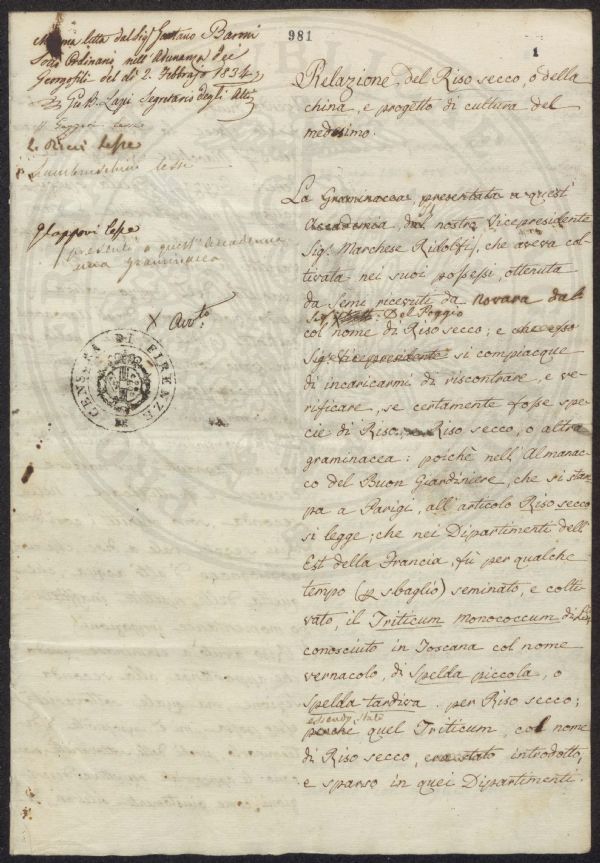 981
1
Memoria letta dal Sig. Gaetano Baroni
Socio Ordinario nell'Adunanza dei
Georgofili del dì 2. Febbrajo 1834,
Segretario degli Atti
L. Ricci lesse
Lambruschini lesse
G Lapponi lesse
presentò a quest'Accademia
una Graminacea
X
CENSURA DI FIRENZE
Relazione del Riso secco, o della
china, e progetto di cultura del
medesimo.
La Graminacea, presentata a quest'
Accademia, dal nostro Vicepresidente
Sig. Marchese Ridolfi, che aveva col-
tivata nei suoi possessi, ottenuta
da semi ricevuti da Novara dal
Sig. Del Poggio
col nome di Riso secco; e che esso
Sig. Vicepresidente si compiacque
di incaricarmi di riscontrare, e ve-
rificare, se certamente fosse spe-
cie di Riso, Riso secco, o altra
graminacea: poichè nell'Almanac-
co del Buon Giardiniere, che si stam
pa a Parigi, all'articolo Riso secco
si legge; che nei Dipartimenti dell'
Est della Francia, fù per qualche
tempo (p sbaglio) seminato, e colti-
vato, il Triticum monococcum di Lin
conosciuto in Toscana col nome
vernacolo, di Spelda piccola, o
Spelda tardiva, per Riso secco;
essendo stato
perchè quel Triticum, col nome
di Riso secco, era stato introdotto,
e sparso in quei Dipartimenti.